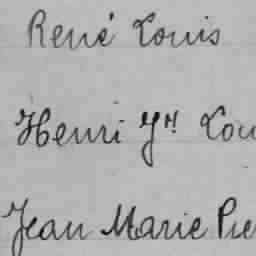 René Louis
Henri Yn Lou
Jean Marie Pie